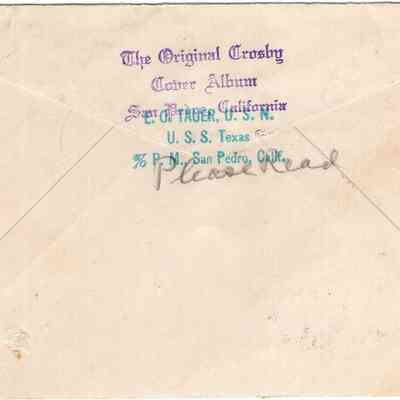 The Original Crosby
Cover Album
San Pedro, California
L. O. TAUER, U. S. N.
U. S. S. Texas
% P. M., San Pedro, Calif.
Please Read